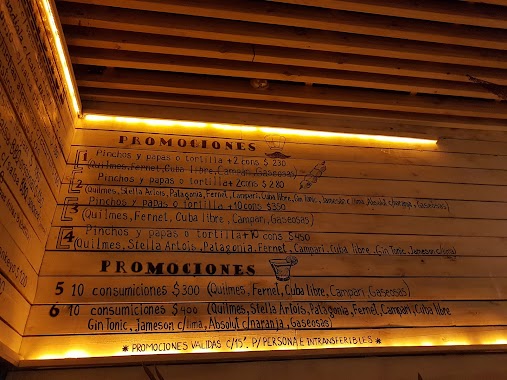 PROMOCIONES
1 Pinchos y papas o tortilla + 2 cons $ 230
(Quilmes, Fernet, Cuba libre, Campari, Gaseosas)
2 Pinchos y papas o tortilla + 2 cons $ 280
(Quilmes, Stella Artois, Patagonia, Fernet, Campari, Cuba libre, Gin Tonic, Jameson c/lima, Absolut c/naranja, Gaseosas)
3 Pinchos y papas o tortilla + 10 cons $ 350
(Quilmes, Fernet, Cuba libre, Campari, Gaseosas)
4 Pinchos y papas o tortilla + 10 cons $ 450
(Quilmes, Stella Artois, Patagonia, Fernet, Campari, Cuba libre, Gin Tonic, Jameson c/lima
PROMOCIONES
5 10 consumiciones $ 300 (Quilmes, Fernet, Cuba libre, Campari, Gaseosas)
6 10 consumiciones $ 400 (Quilmes, Stella Artois, Patagonia, Fernet, Campari, Cuba libre
Gin Tonic, Jameson c/lima, Absolut c/naranja, Gaseosas)
* PROMOCIONES VALIDAS C/15', P/ PERSONA E INTRANSFERIBLES *